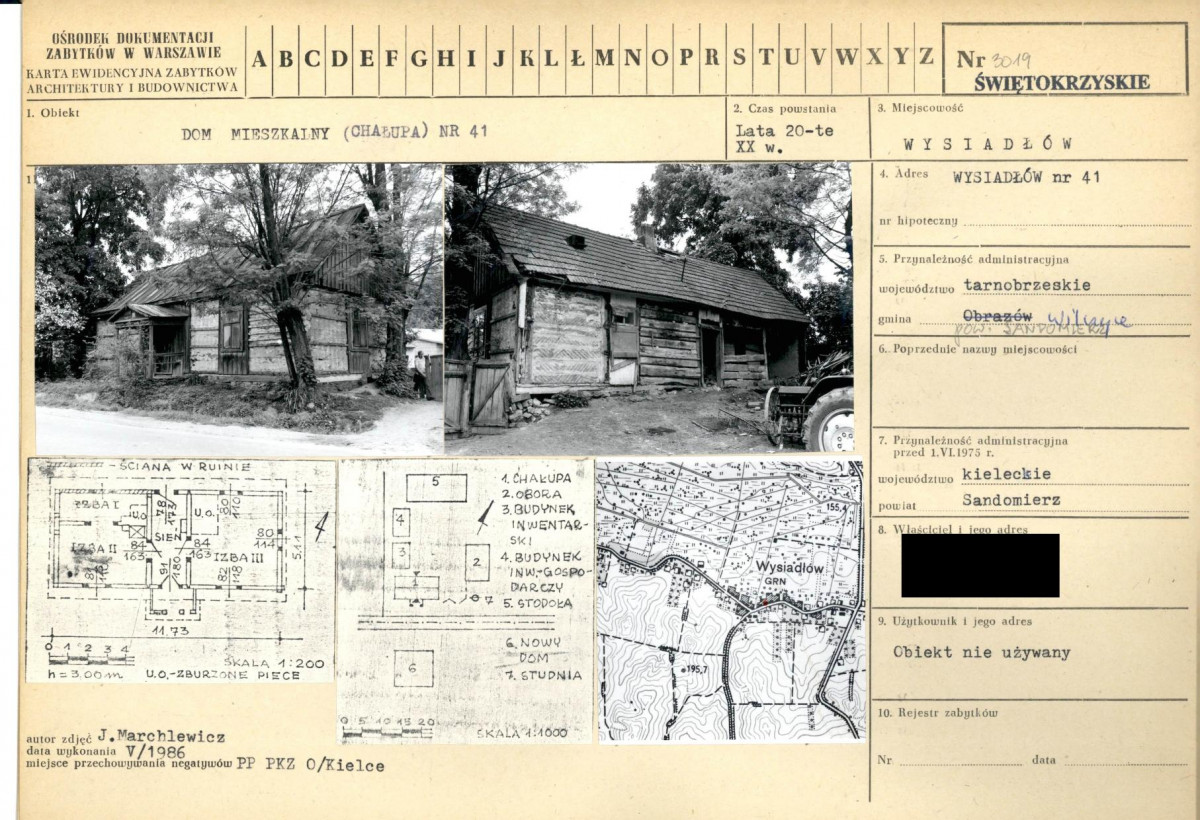 OŚRODEK DOKUMENTACJI
ZABYTKÓW W WARSZAWIE
KARTA EWIDENCYJNA ZABYTKÓW
ARCHITEKTURY I BUDOWNICTWA
A B C D E F G H I J K L Ł M N O P R S T U V W X Y Z
Nr 3019
ŚWIĘTOKRZYSKIE
1. Obiekt
DOM MIESZKALNY (CHAŁUPA) NR 41
2. Czas powstania
Lata 20-te
XX w.
3. Miejscowość
WYSIADŁÓW
4. Adres WYSIADŁÓW nr 41
nr hipoteczny
5. Przynależność administracyjna
województwo tarnobrzeskie
gmina Obrazów Wilczyce
pow. SANDOMIERZ
6. Poprzednie nazwy miejscowości
7. Przynależność administracyjna
przed 1.VI.1975 r.
województwo kieleckie
powiat Sandomierz
8. Właściciel i jego adres
9. Użytkownik i jego adres
Obiekt nie używany
10. Rejestr zabytków
Nr. data
1
- ŚCIANA W RUINIE
IZBA I
U.O.
78
173
U.O.
80
110
SIEŃ
IZBA II
84
163
84
163
IZBA III
80
114
5.11
91
180
82
118
11.73
0 1 2 3 4
SKALA 1:200
h = 3,00 m U.O.-ZBURZONE PIECE
5
4
3
2
1
7
6
1. CHAŁUPA
2. OBORA
3. BUDYNEK
INWENTAR-
SKI
4. BUDYNEK
INW.-GOSPO-
DARCZY
5. STODOŁA
6. NOWY
DOM
7. STUDNIA
0 5 10 15 20
SKALA 1:1000
155,4
Wysiadłów
GRN
195,7
autor zdjęć J.Marchlewicz
data wykonania V/1986
miejsce przechowywania negatywów PP PKZ O/Kielce